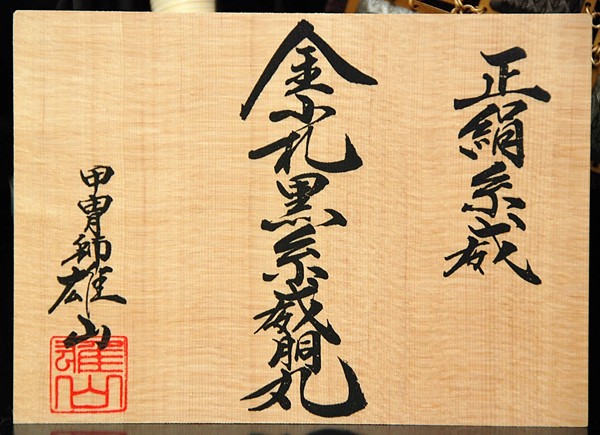 正絹糸威
金小札黒糸威胴丸
甲冑師雄山
雄山